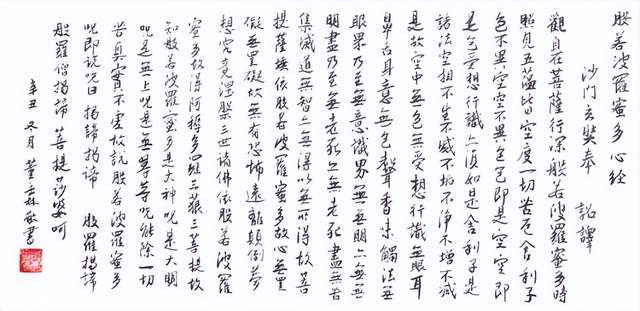 般若波羅蜜多心經
沙門玄奘奉 詔譯
觀自在菩薩行深般若波羅蜜多時
照見五蘊皆空度一切苦厄舍利子
色不異空空不異色色即是空空即
是色受想行識亦復如是舍利子是
諸法空相不生不滅不垢不淨不增不減
是故空中無色無受想行識無眼耳
鼻舌身意無色聲香味觸法無
眼界乃至無意識界無無明亦無無
明盡乃至無老死亦無老死盡無苦
集滅道無智亦無得以無所得故菩
提薩埵依般若波羅蜜多故心無罣
礙無罣礙故無有恐怖遠離顛倒夢
想究竟涅槃三世諸佛依般若波羅
蜜多故得阿耨多羅三藐三菩提故
知般若波羅蜜多是大神呪是大明
呪是無上呪是無等等呪能除一切
苦真實不虛故說般若波羅蜜多
呪即說呪曰 揭諦揭諦 般羅揭諦
般羅僧揭諦 菩提莎婆呵
辛丑冬月 董森書